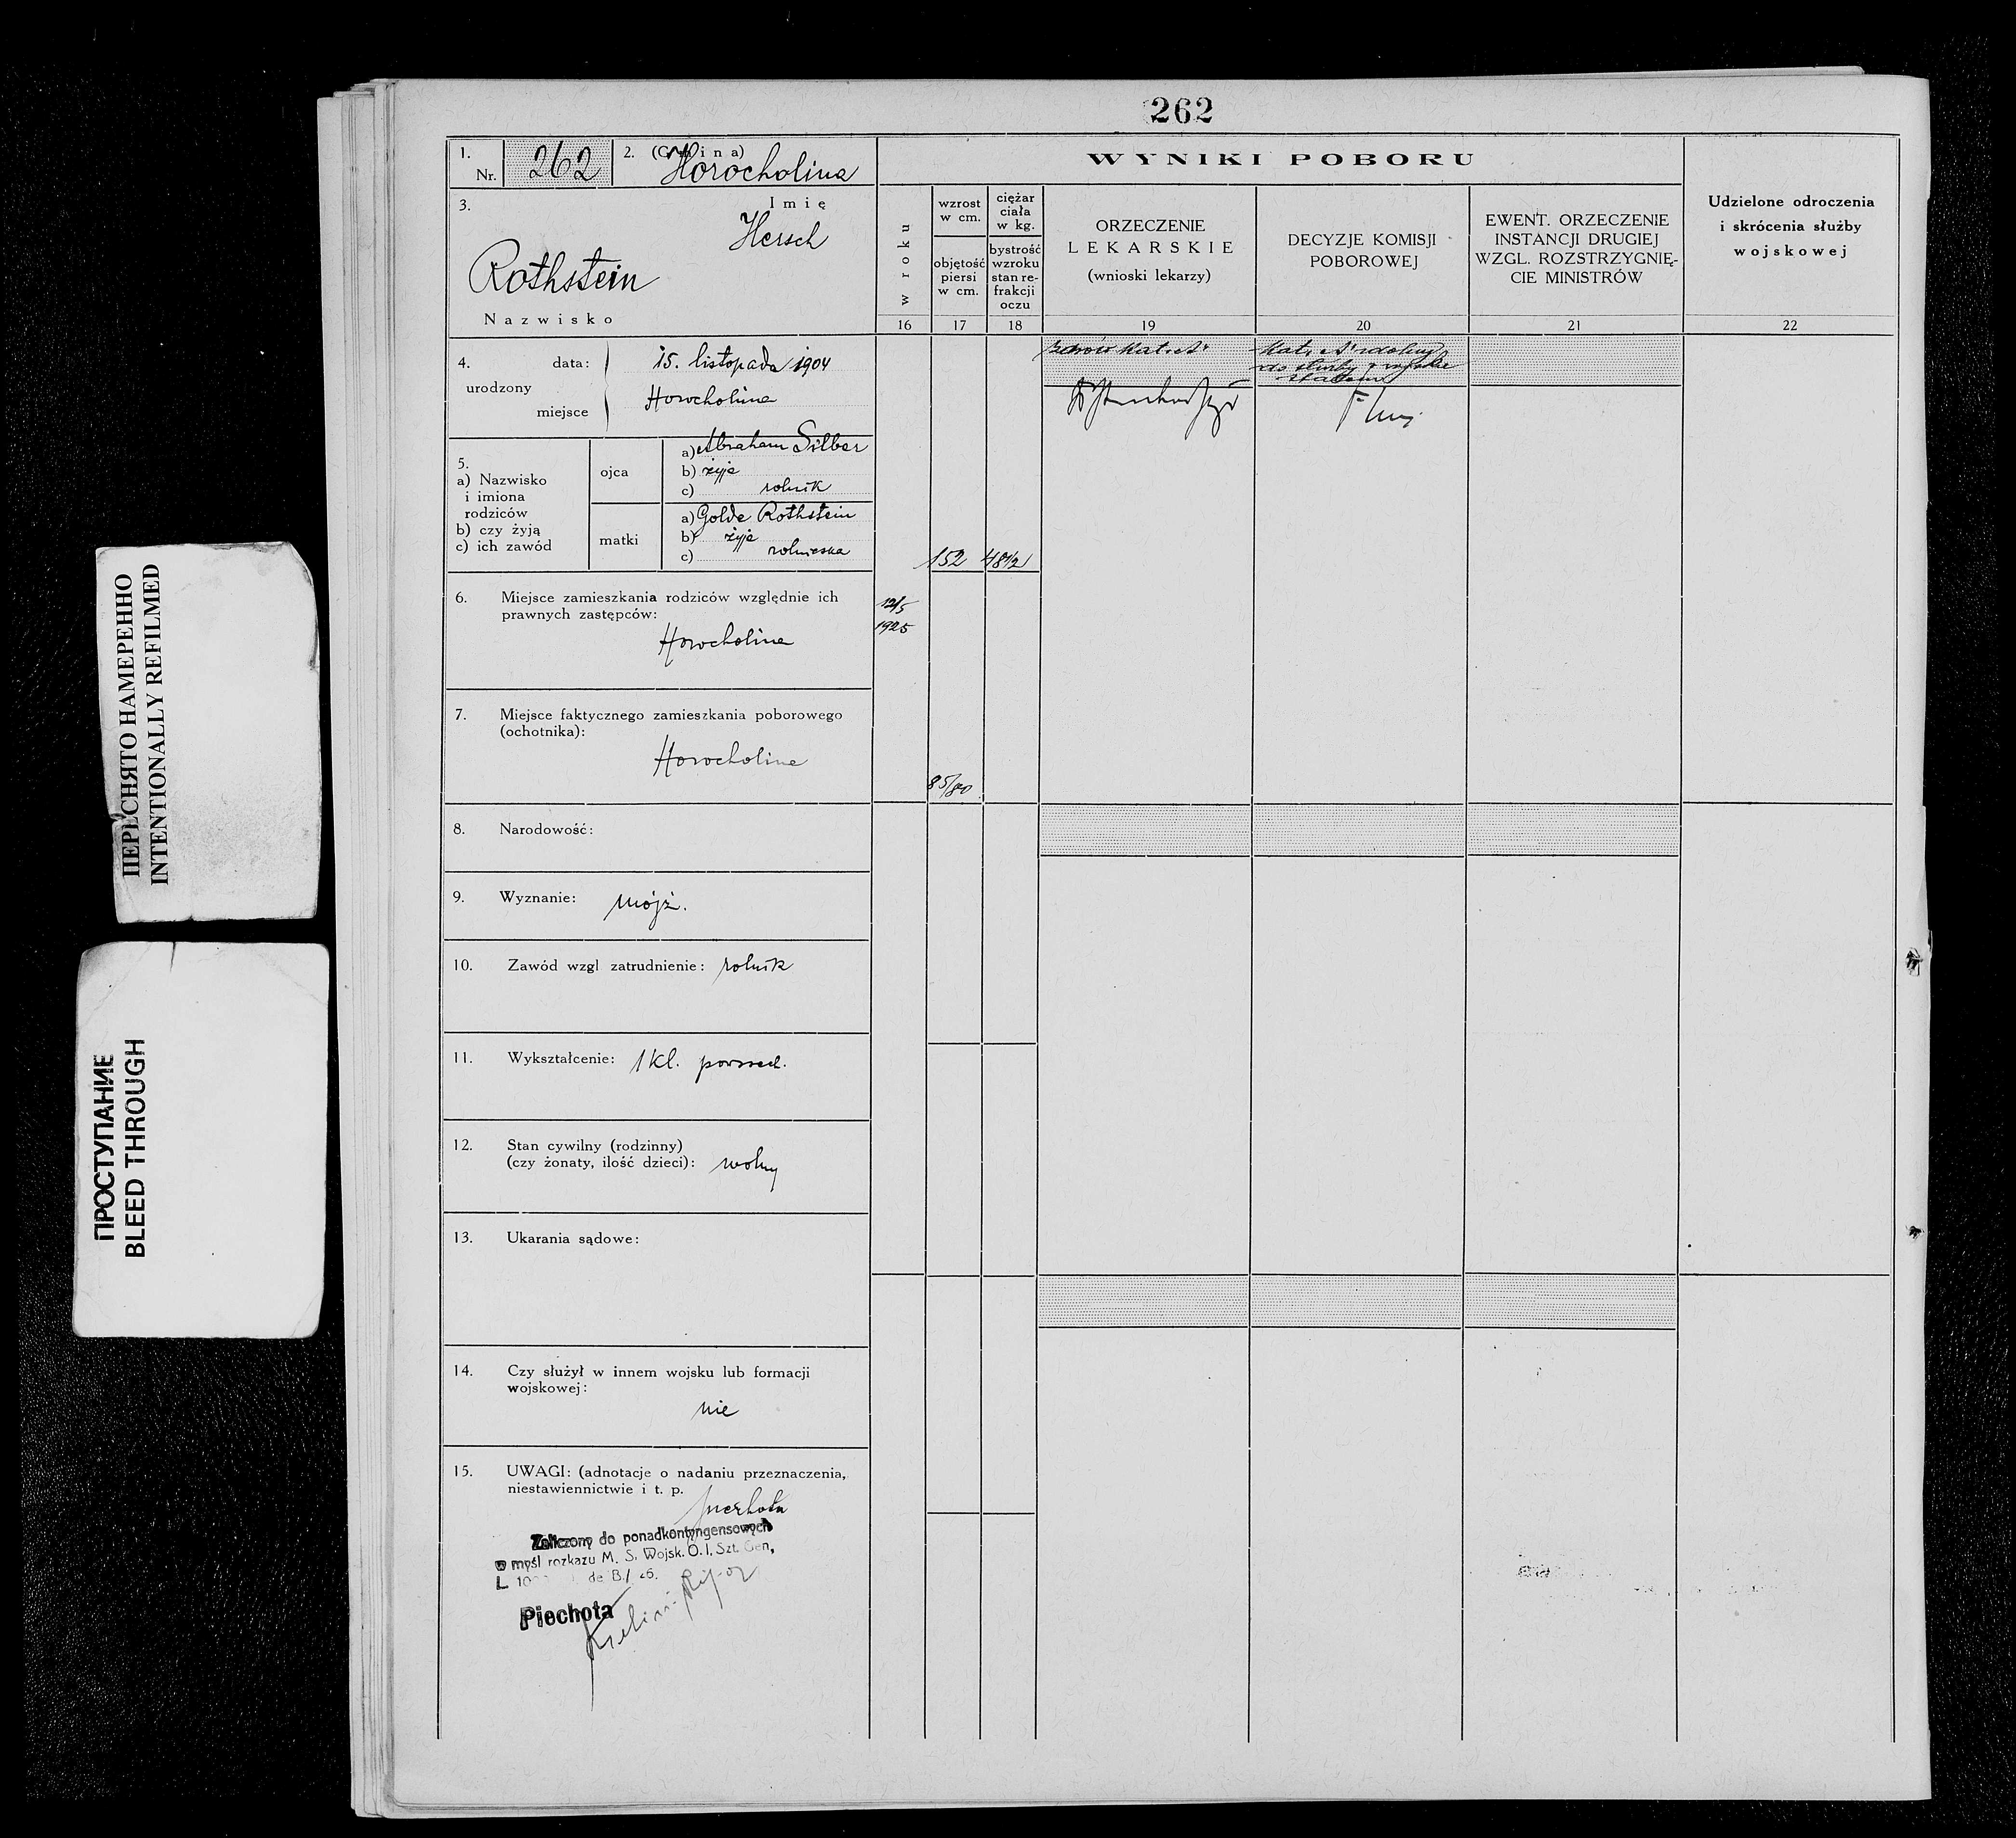 262
1.
Nr.
262
2. (Gmina)
Horocholina
3.
Imię
Hersch
Rothstein
Nazwisko
4.
urodzony
data: 15. listopada 1904
miejsce Horocholina
5.
a) Nazwisko
i imiona
rodziców
b) czy żyją
c) ich zawód
ojca
a) Abraham Silber
b) żyje
c) rolnik
matki
a) Golde Rothstein
b) żyje
c) rolniczka
6. Miejsce zamieszkania rodziców względnie ich
prawnych zastępców:
Horocholina
7. Miejsce faktycznego zamieszkania poborowego
(ochotnika):
Horocholina
8. Narodowość:
9. Wyznanie: mojż.
10. Zawód wzgl zatrudnienie: rolnik
11. Wykształcenie: 1 kl. powszech.
12. Stan cywilny (rodzinny)
(czy żonaty, ilość dzieci): wolny
13. Ukarania sądowe:
14. Czy służył w innem wojsku lub formacji
wojskowej:
nie
15. UWAGI: (adnotacje o nadaniu przeznaczenia,
niestawiennictwie i t. p.
piechota
Zaliczony do ponadkontyngensowych
w myśl rozkazu M. S. Wojsk. O. I. Szt. Gen,
L 10 de B./ 26.
Piechota
WYNIKI POBORU
w roku
16
wzrost
w cm.
objętość
piersi
w cm.
17
ciężar
ciała
w kg.
bystrość
wzroku
stan re-
frakcji
oczu
18
ORZECZENIE
LEKARSKIE
(wnioski lekarzy)
19
DECYZJE KOMISJI
POBOROWEJ
20
EWENT. ORZECZENIE
INSTANCJI DRUGIEJ
WZGL. ROZSTRZYGNIĘ-
CIE MINISTRÓW
21
Udzielone odroczenia
i skrócenia służby
wojskowej
22
12/5
1925
152
48 1/2
85/80
zdrów Kat. A
Kat. A zdolny
do służby w wojsku
stałem
ПЕРЕСНЯТО НАМЕРЕННО
INTENTIONALLY REFILMED
ПРОСТУПАНИЕ
BLEED THROUGH